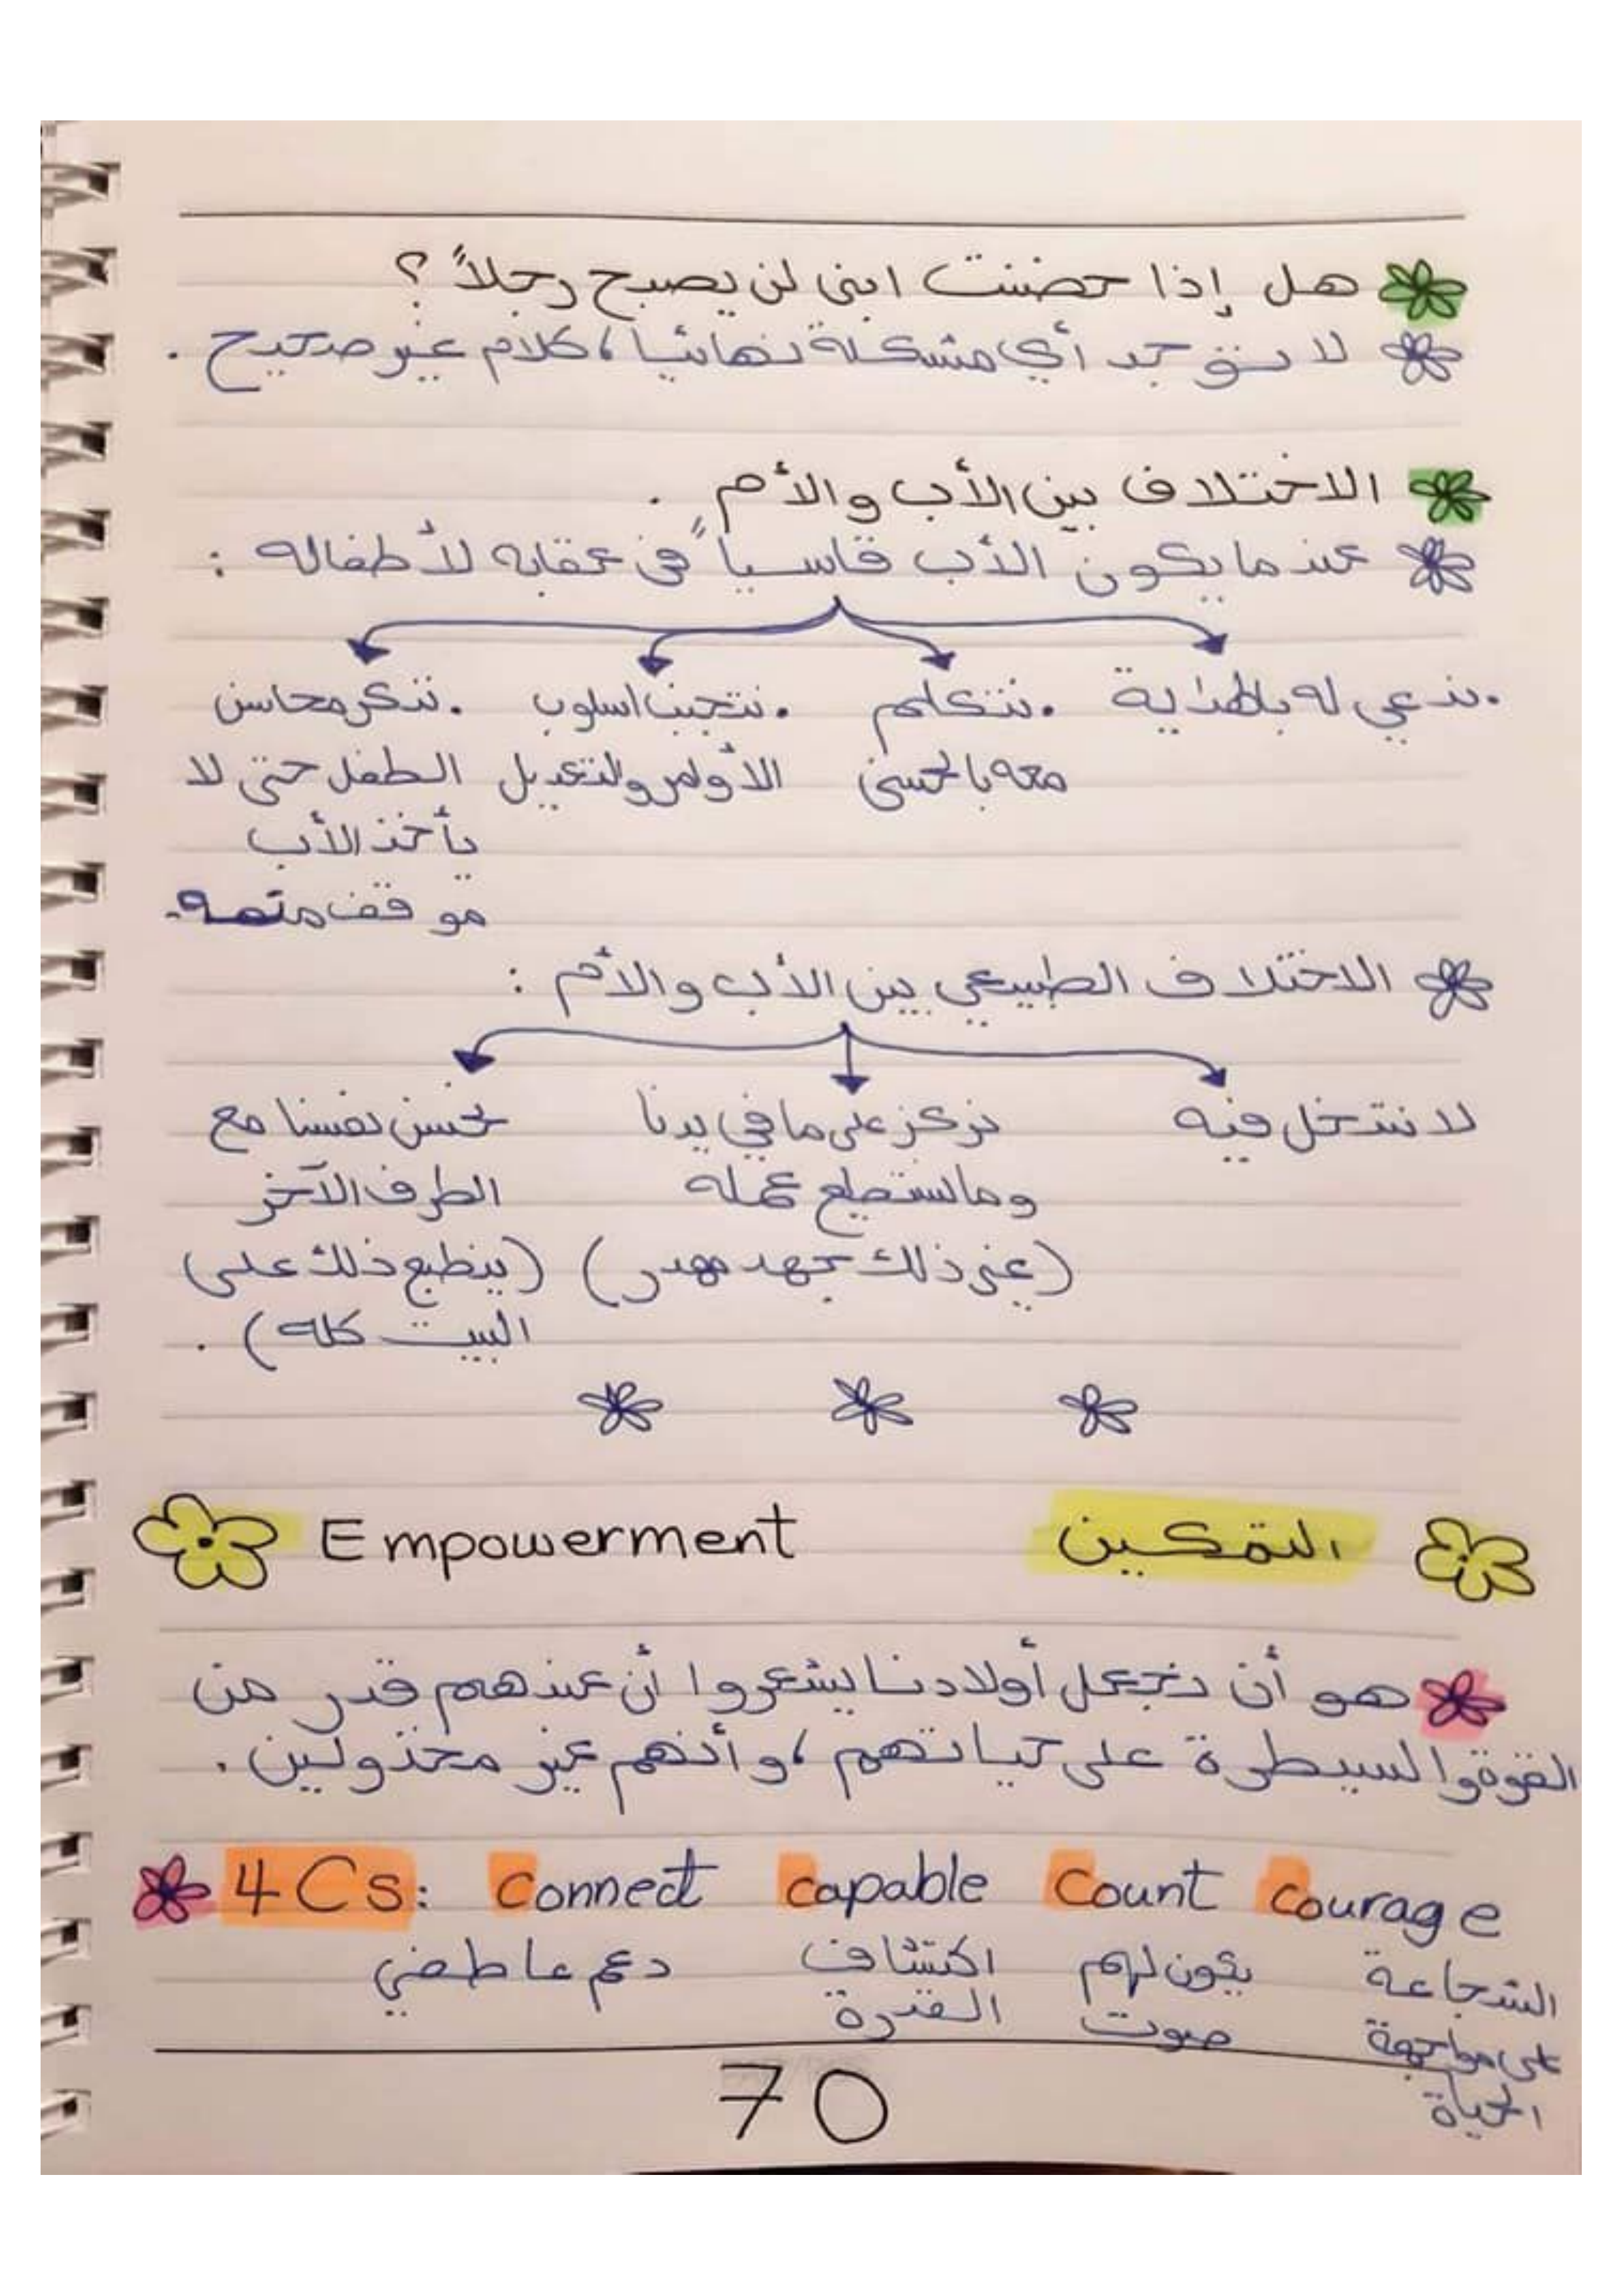 هل إذا حضنت ابني لن يصبح رجلاً ؟
لا يوجد أي مشكلة نهائيا، كلام غير صحيح .
الاختلاف بين الأب والأم .
عندما يكون الأب قاسياً في عقابه لأطفاله :
. ندعي له بالهداية
. نتكلم
معه بالحسنى
. نتجنب اسلوب
الأوامر والتعديل
. نذكر محاسن
الطفل حتى لا
يأخذ الأب
موقف منه.
الاختلاف الطبيعي بين الأب والأم :
لا نتدخل فيه
نركز على ما في يدنا
وما نستطيع عمله
(غير ذلك جهد مهدر)
نحسن نفسنا مع
الطرف الآخر
(ينطبع ذلك على
البيت كله) .
التمكين Empowerment
هو أن نجعل أولادنا يشعروا أن عندهم قدر من
القوة والسيطرة على حياتهم، وأنهم غير مخذولين .
4 Cs: Connect Capable Count Courage
دعم عاطفي
اكتشاف
القدرة
يكون لهم
صوت
الشجاعة
على مواجهة
الحياة
70